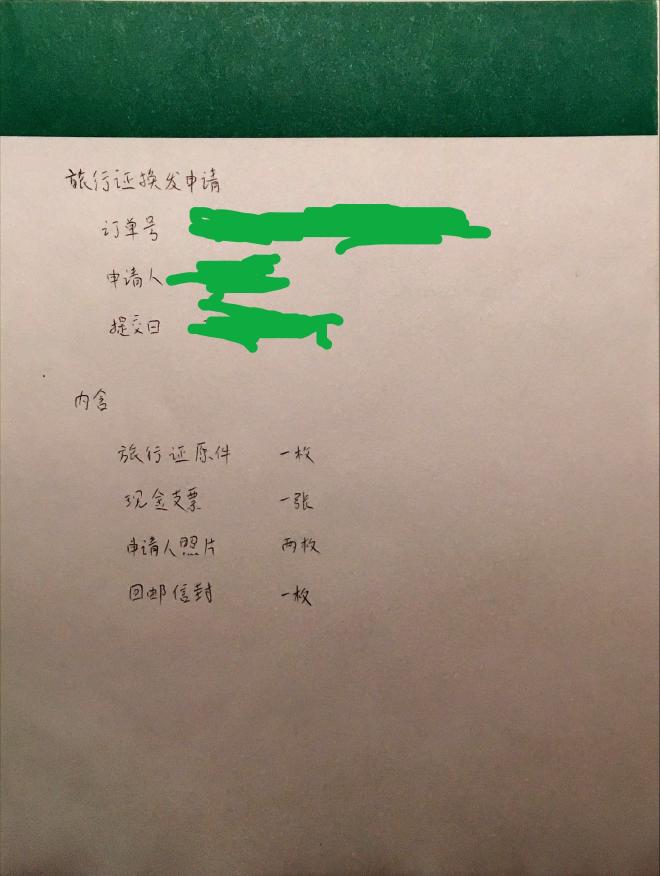 旅行证换发申请
订单号
申请人
提交日
内含
旅行证原件 一枚
现金支票 一张
申请人照片 两枚
回邮信封 一枚